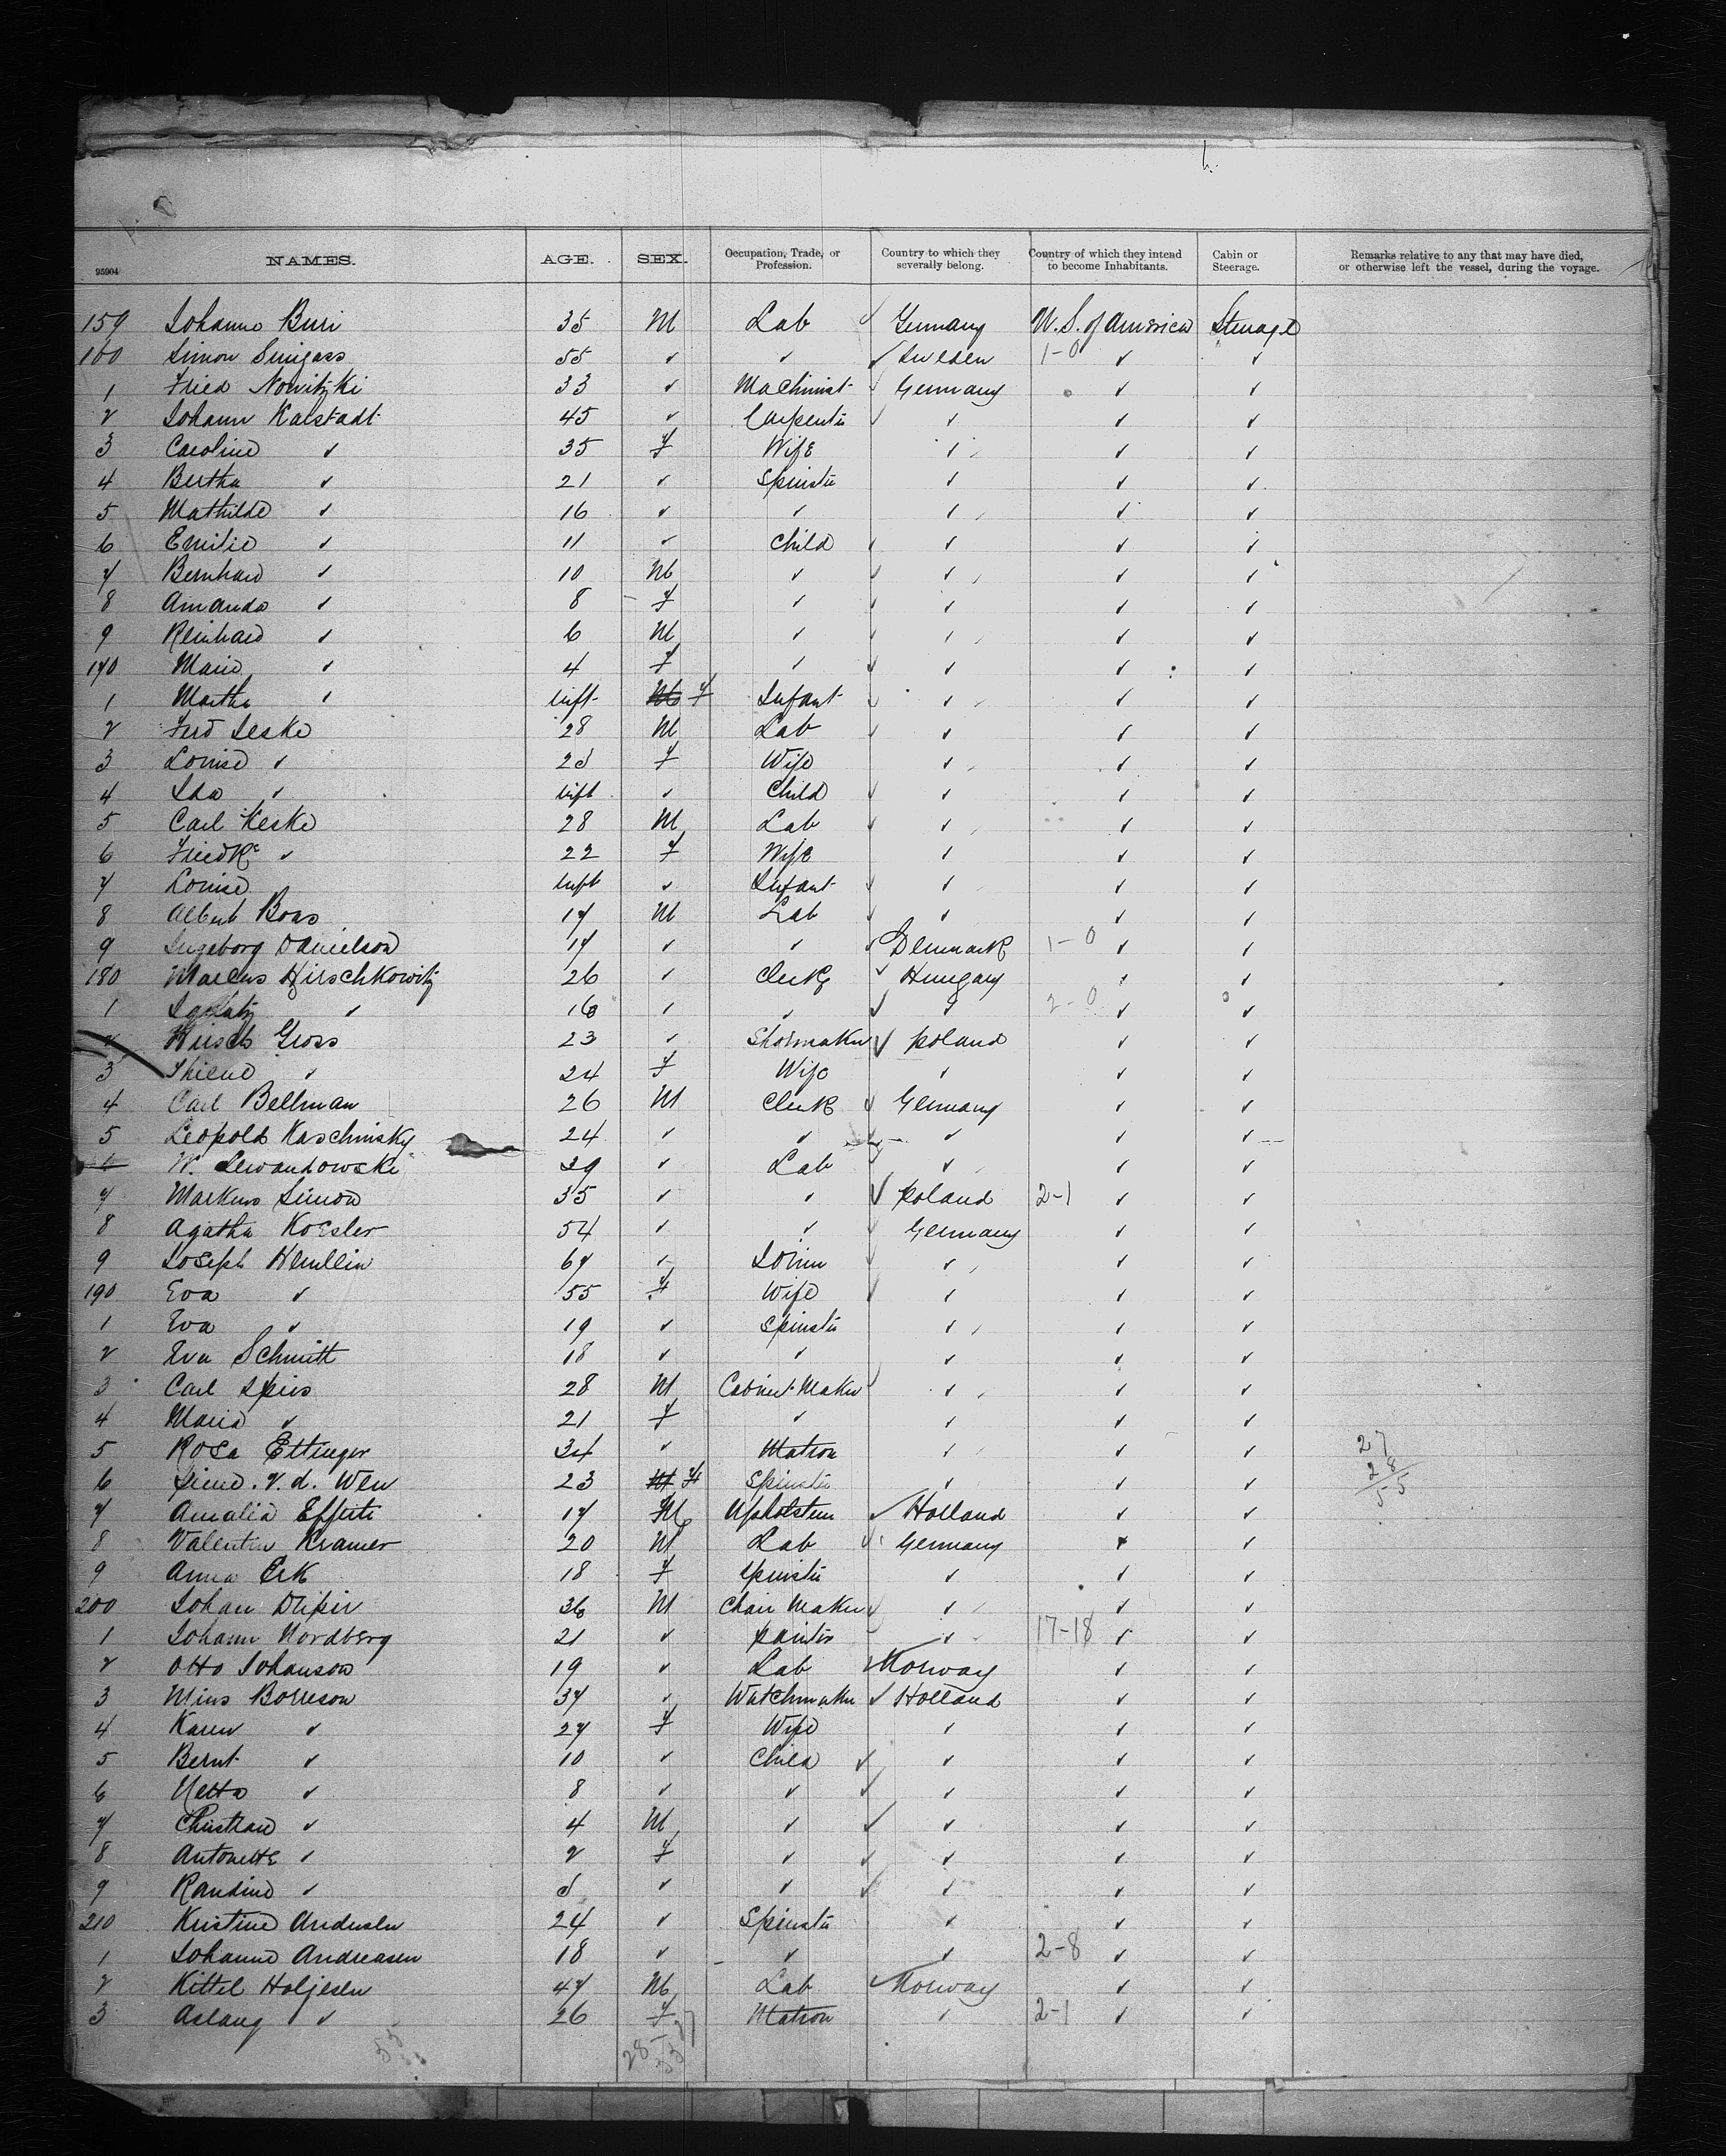 h.
95904 NAMES. AGE. SEX. Occupation, Trade, or Profession. Country to which they severally belong. Country of which they intend to become Inhabitants. Cabin or Steerage. Remarks relative to any that may have died, or otherwise left the vessel, during the voyage.
159 Johanne Buri 35 M Lab ✓ Germany U.S. of America Steerage
160 Simon 55 ✓ ✓ ✓ Sweden 1-0 ✓ ✓
1 Fried Nowitzki 33 ✓ Machinist ✓ Germany ✓ ✓
2 Johann Kalstadt 45 ✓ Carpenter ✓ ✓ ✓ ✓
3 Caroline ✓ 35 F Wife ✓ ✓ ✓
4 Bertha ✓ 21 ✓ Spinster ✓ ✓ ✓
5 Mathilde ✓ 16 ✓ ✓ ✓ ✓ ✓
6 Emilie ✓ 11 ✓ Child ✓ ✓ ✓ ✓
7 Bernhard ✓ 10 M ✓ ✓ ✓ ✓ ✓
8 Amanda ✓ 8 F ✓ ✓ ✓ ✓ ✓
9 Reinhard ✓ 6 M ✓ ✓ ✓ ✓ ✓
170 Marie ✓ 4 F ✓ ✓ ✓ ✓ ✓
1 Martha ✓ inft M F Infant ✓ ✓ ✓ ✓
2 Ferd Leske 28 M Lab ✓ ✓ ✓ ✓
3 Louise ✓ F Wife ✓ ✓ ✓
4 Ida ✓ inft ✓ Child ✓ ✓ ✓ ✓
5 Carl Keske 28 M Lab ✓ ✓ ✓ ✓
6 Friedke ✓ 22 F Wife ✓ ✓ ✓
7 Louise inft ✓ Infant ✓ ✓ ✓ ✓
8 Albert Boas 17 M Lab ✓ ✓ ✓ ✓
9 Ingeborg Danielson 17 ✓ ✓ ✓ Denmark 1-0 ✓ ✓
180 Marcus Hirschkowitz 26 ✓ Clerk ✓ Hungary ✓ ✓
1 Ignatz ✓ 16 ✓ ✓ ✓ ✓ 2-0 ✓ ✓
2 Hirsch Gross 23 ✓ Shoemaker ✓ Poland ✓ ✓
3 ✓ 24 F Wife ✓ ✓ ✓
4 Carl Bellman 26 M Clerk ✓ Germany ✓ ✓
5 Leopold Kaschinsky 24 ✓ ✓ ✓ ✓ ✓ ✓
6 W. Lewandowski 29 ✓ Lab ✓ ✓ ✓ ✓
7 Markus Simon 35 ✓ ✓ ✓ Poland 2-1 ✓ ✓
8 Agatha Koesler 54 ✓ ✓ ✓ Germany ✓ ✓
9 Joseph 67 ✓ ✓ ✓ ✓ ✓
190 Eva ✓ 55 F Wife ✓ ✓ ✓ ✓
1 Eva ✓ 19 ✓ Spinster ✓ ✓ ✓
2 Eva Schmitt 18 ✓ ✓ ✓ ✓ ✓
3 Carl Spies 28 M Cabinet Maker ✓ ✓ ✓ ✓
4 Maria ✓ 21 F ✓ ✓ ✓ ✓
5 Rosa Ettinger 34 ✓ Matron ✓ ✓ ✓ 27
6 v. d. Wen 23 M F Spinster ✓ ✓ ✓ 28
55
7 Amalia Efferts 17 M Upholsterer ✓ Holland ✓ ✓
8 Valentin Kramer 20 M Lab ✓ Germany ✓ ✓
9 Anna Erk 18 F Spinster ✓ ✓ ✓
200 Johan 36 M Chair Maker ✓ ✓ ✓ ✓
1 Johann Nordberg 21 ✓ Painter ✓ 17-18 ✓ ✓
2 Otto Johanson 19 ✓ Lab ✓ Norway ✓ ✓
3 Nins Borreson 37 ✓ Watchmaker ✓ Holland ✓ ✓
4 Karen ✓ 27 F Wife ✓ ✓ ✓
5 Bernt ✓ 10 ✓ Child ✓ ✓ ✓ ✓
6 Netta ✓ 8 ✓ ✓ ✓ ✓ ✓ ✓
7 Christian ✓ 4 M ✓ ✓ ✓ ✓ ✓
8 Antonette ✓ 2 F ✓ ✓ ✓ ✓ ✓
9 Randine ✓ ✓ ✓ ✓ ✓ ✓ ✓
210 Kristine Andersen 24 ✓ Spinster ✓ ✓ ✓
1 Johanne Andreasen 18 ✓ ✓ ✓ 2-8 ✓ ✓
2 Kittel Holjesen 47 M Lab ✓ Norway ✓ ✓
3 Aslaug ✓ 26 F Matron ✓ 2-1 ✓ ✓
55 28 27
55